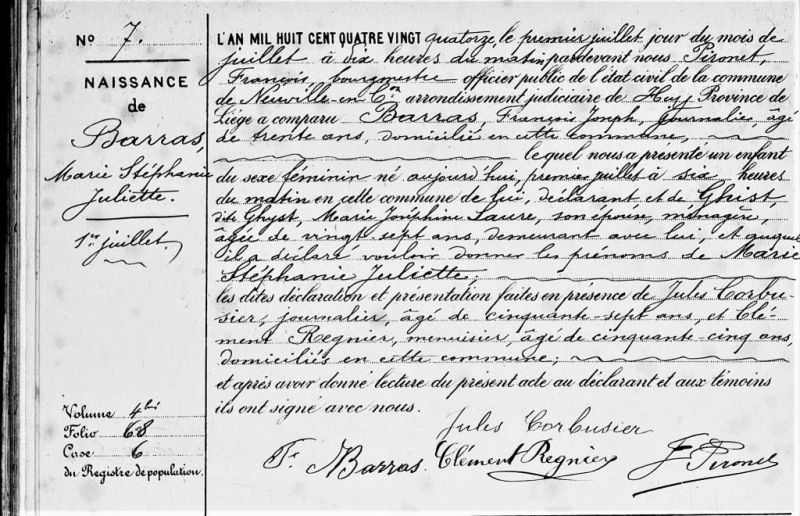 N° 7.
NAISSANCE
de
Barras,
Marie Stéphanie
Juliette.
1er juillet
Volume 4bis
Folio 68
Case 6
du Registre de population.
L'AN MIL HUIT CENT QUATRE VINGT quatorze, le premier juillet jour du mois de
juillet à dix heures du matin pardevant nous Pironet,
François, bourgmestre officier public de l'état civil de la commune
de Neuville-en-Cz arrondissement judiciaire de Huy Province de
Liège a comparu Barras, François Joseph, journalier, âgé
de trente ans, domicilié en cette commune,
lequel nous a présenté un enfant
du sexe féminin né aujourd'hui, premier juillet à six heures
du matin en cette commune de lui, déclarant et de Ghist,
dite Ghyst, Marie Joséphine Laure, son épouse, ménagère,
âgée de vingt-sept ans, demeurant avec lui, et auquel
il a déclaré vouloir donner les prénoms de Marie
Stéphanie Juliette;
les dites déclaration et présentation faites en présence de Jules Corbu-
sier, journalier, âgé de cinquante-sept ans, et Clé-
ment Regnier, menuisier, âgé de cinquante-cinq ans,
domiciliés en cette commune;
et après avoir donné lecture du présent acte au déclarant et aux témoins
ils ont signé avec nous.
Jules Corbusier
Fs Barras. Clément Regnier F Pironet